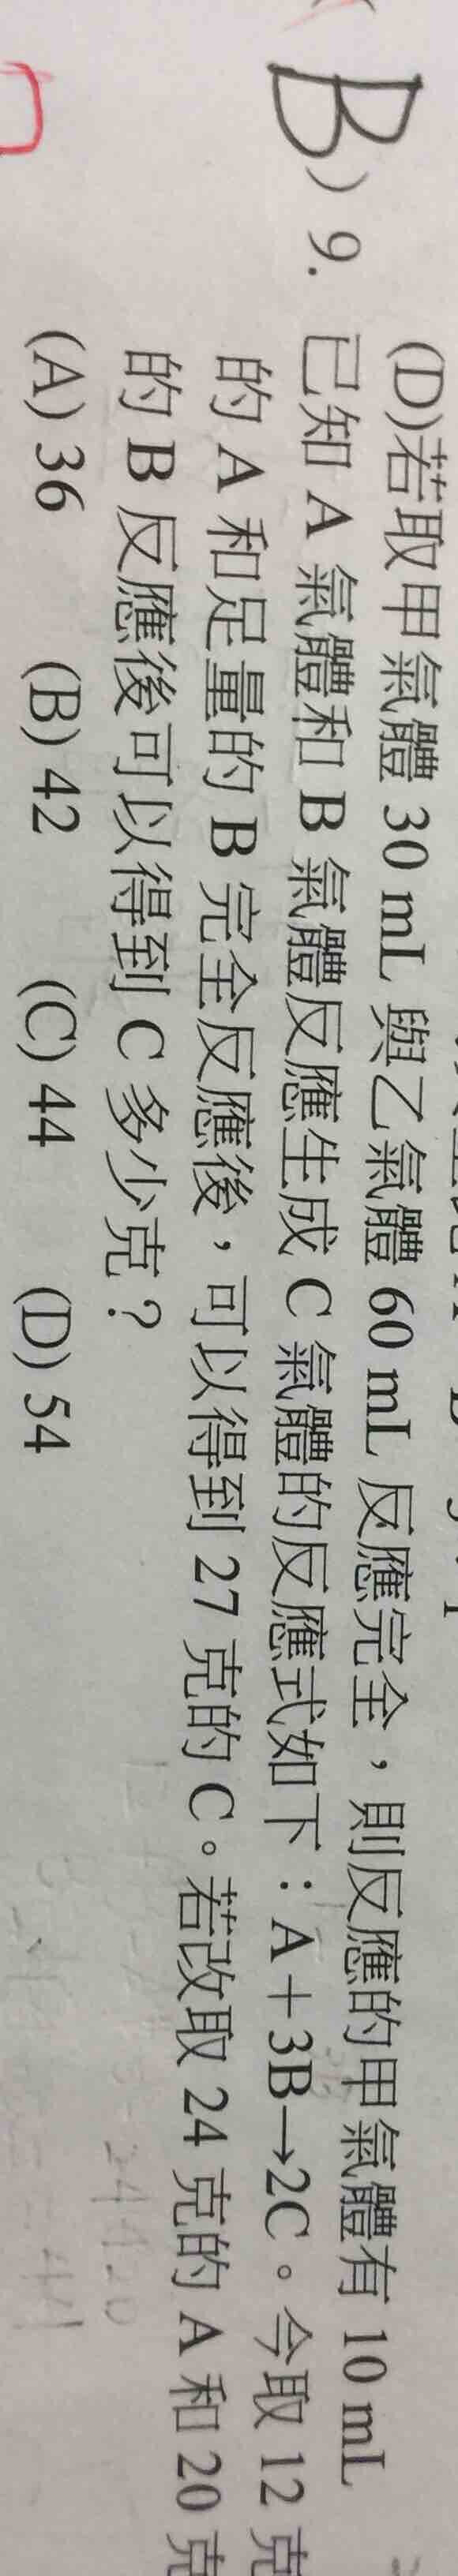 (D)若取甲氣體 30 mL 與乙氣體 60 mL 反應完全，則反應的甲氣體有 10 mL
B ) 9. 已知 A 氣體和 B 氣體反應生成 C 氣體的反應式如下：A＋3B→2C。今取 12 克
的 A 和足量的 B 完全反應後，可以得到 27 克的 C。若改取 24 克的 A 和 20 克
的 B 反應後可以得到 C 多少克？
(A) 36 (B) 42 (C) 44 (D) 54